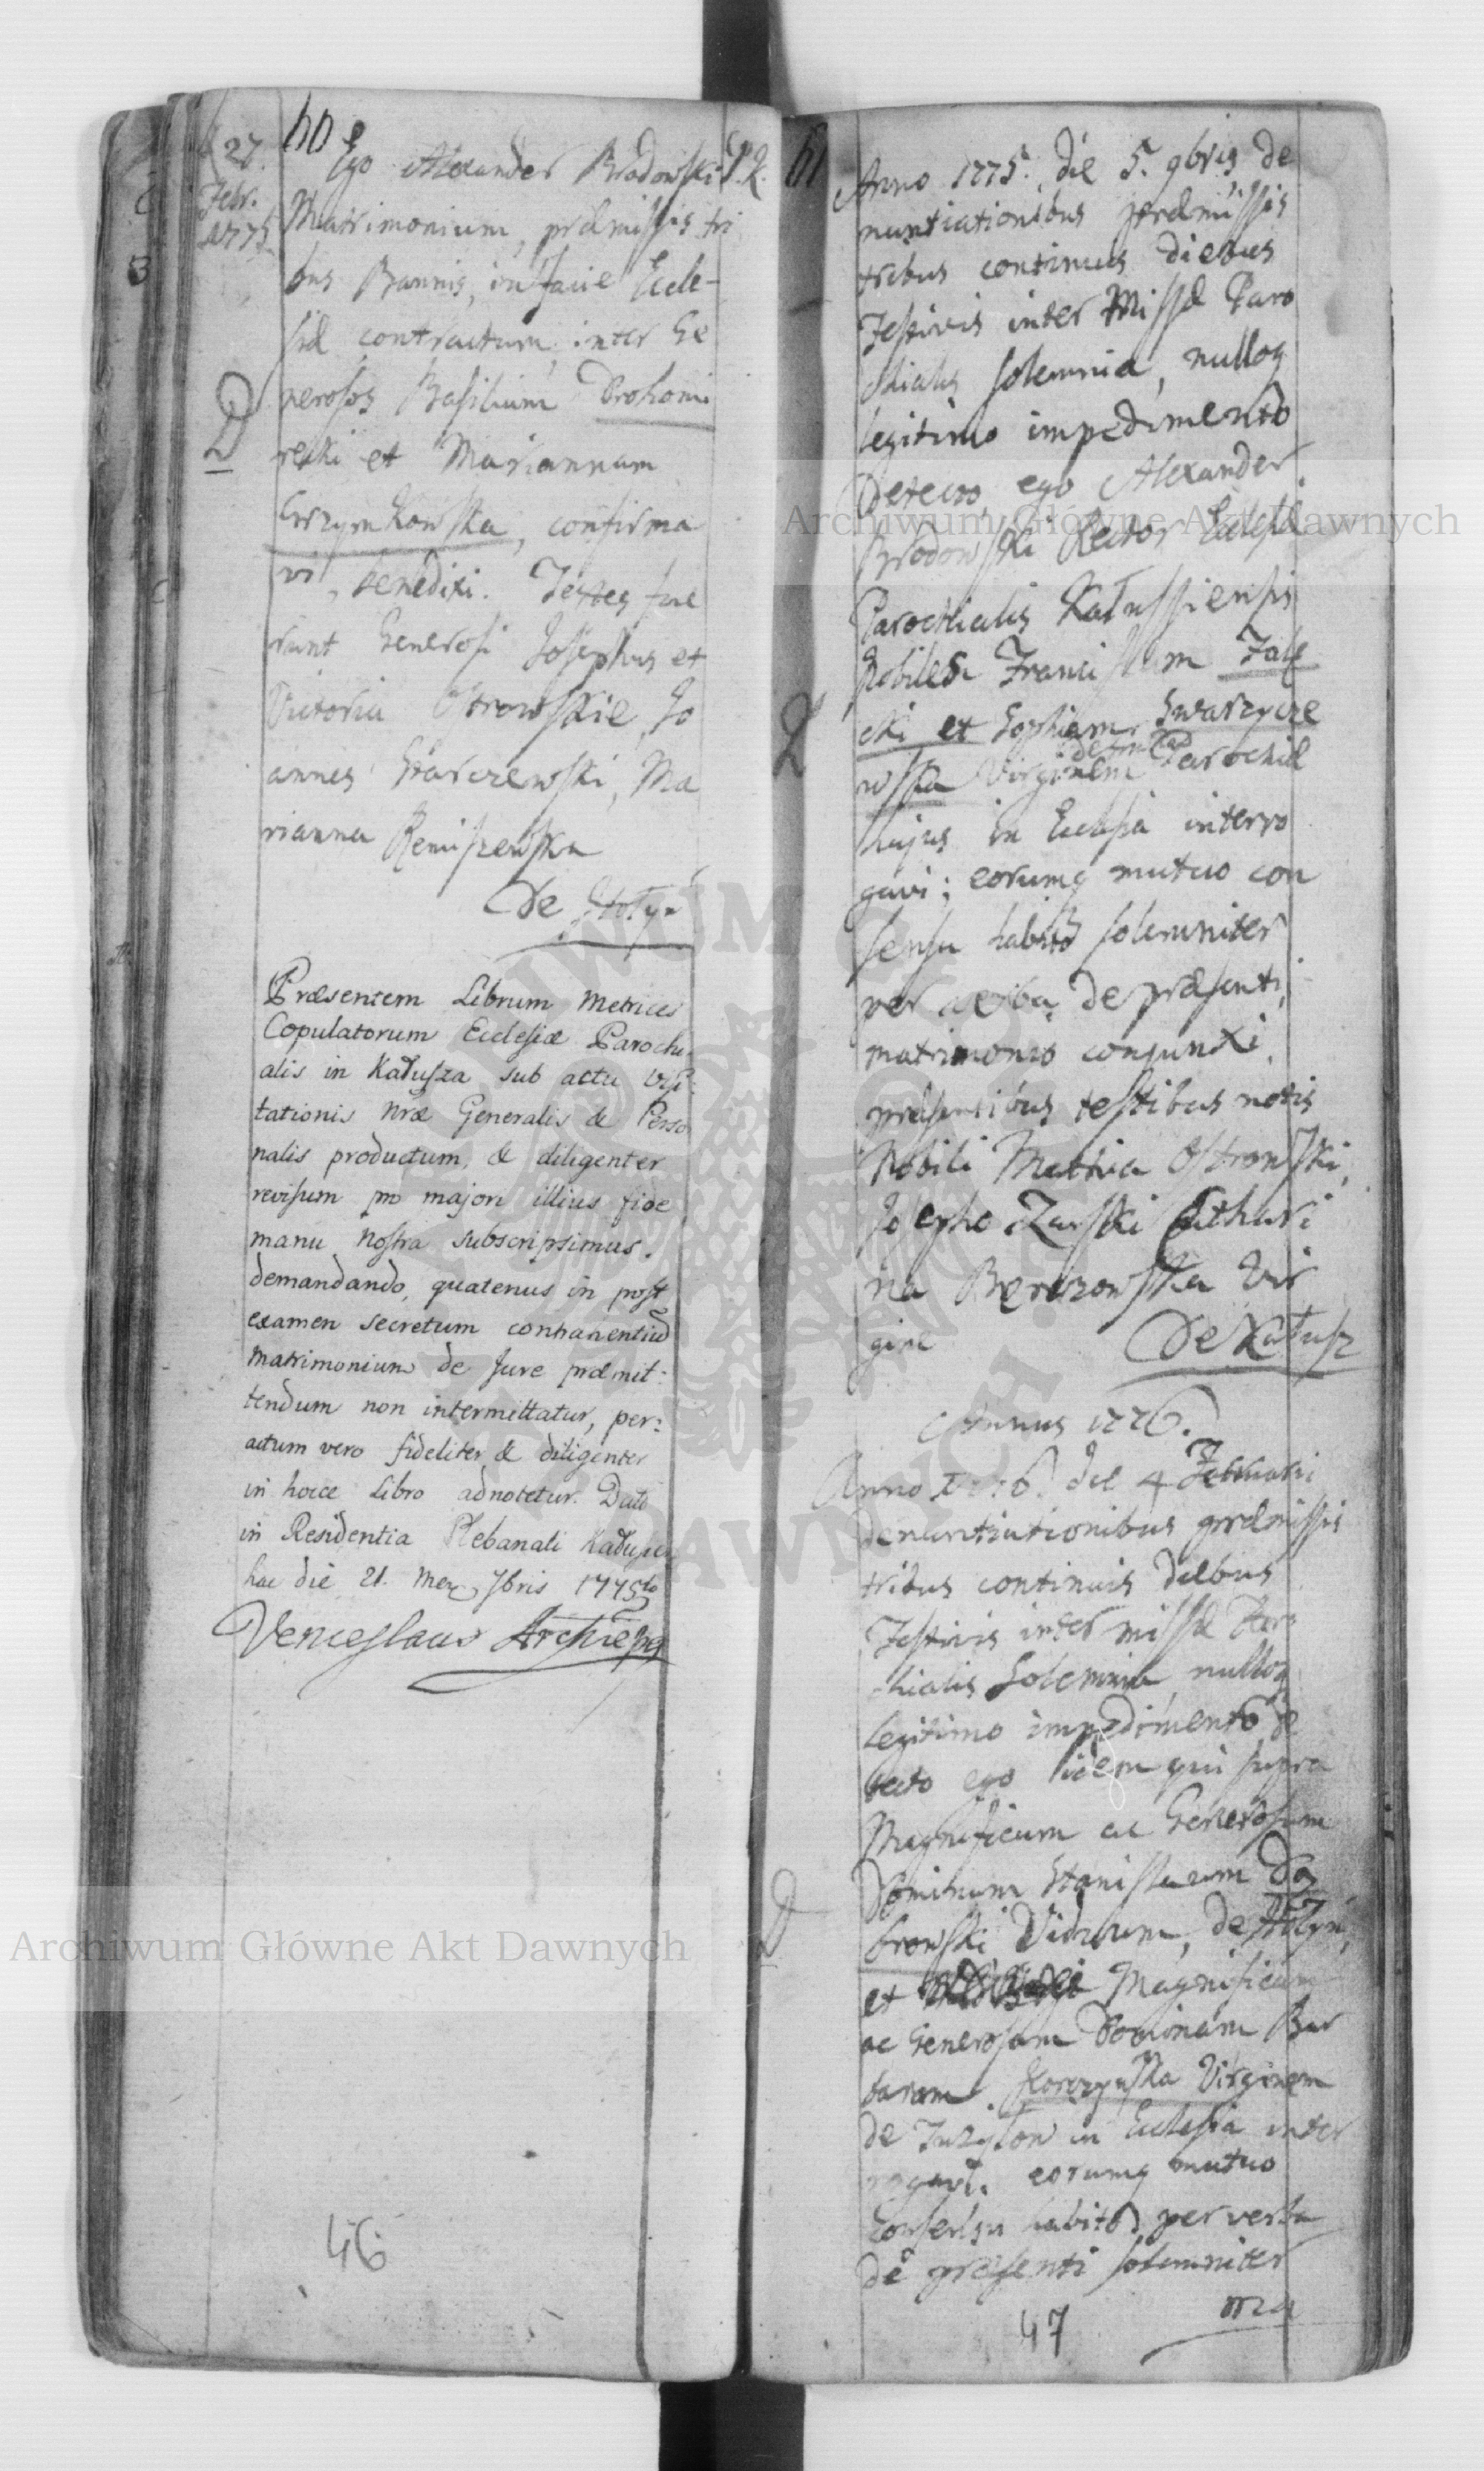 60
27.
Febr.
1775
Ego Alexander Brodowski P. K.
Matrimonium, præmissis tri
bus Bannis, in facie Eccle-
siæ contractum inter Ge
nerosos Basilium Drohomi
D
recki et Mariannam
Krzymkowska, confirma
vi, benedixi. Testes fue
runt Generosi Josephus et
Victoria Ostrowskie, Jo
annes Skarczewski, Ma
rianna Remiszewska
De Hołyń
Præsentem Librum Metrices
Copulatorum Ecclesiæ Parochi
alis in Kałusza sub actu Visi:
tationis nræ Generalis & Perso
nalis productum, & diligenter
revisum pro majori illius fide
manu nostra subscripsimus.
demandando, quatenus in post
examen secretum contrahentium
Matrimonium de Jure præmit:
tendum non intermittatur, per:
actum vero fideliter & diligenter
in hocce Libro adnotetur. Datt
in Residentia Plebanali Kałuszen
hac die 21. Men. 7bris 1775to
Venceslaus Archiepps
46
61
Anno 1775. die 5. 9bris de
nuntiationibus præmissis
tribus continuis diebus
festivis inter Missæ Paro
chialis solemnia, nulloq
legitimo impedimento
detecto, ego Alexander
Brodowski Rector Ecclesiæ
Parochialis Kałussiensis
Nobiles Franciscum Zale
cki et Sophiam Swarycze
wska Virginem de Parochiæ
hujus in Ecclesia interro
gavi; eorumq mutuo con
sensu habito solemniter
per verba de præsenti,
matrimonio conjunxi,
præsentibus testibus notis
Nobili Mathia Ostrowski,
Josepho Zurski Cathari
na Berezowska Vir
gine
De Kałusz
Annus 1776.
Anno 1776. die 4 Februarii
denuntiationibus præmissis
tribus continuis diebus
Festivis inter missæ Paro
chialis Solemnia nulloq
legitimo impedimento de
tecto ego idem qui supra
Magnificum ac Generosum
D
Dominum Stanislaum Dą
browski Viduum, de Hołyń,
et Magnificam
ac Generosam Dominam Bar
baram Korczynska Virginem
de in Ecclesia inter
rogavi. eorumq mutuo
Consensu habito per verba
de præsenti solemniter
ma
47
Archiwum Główne Akt Dawnych
Archiwum Główne Akt Dawnych